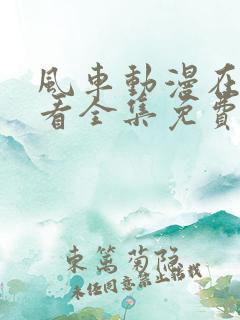 風車動漫在
看全集免費
東篱菊隐
未经同意禁止转载